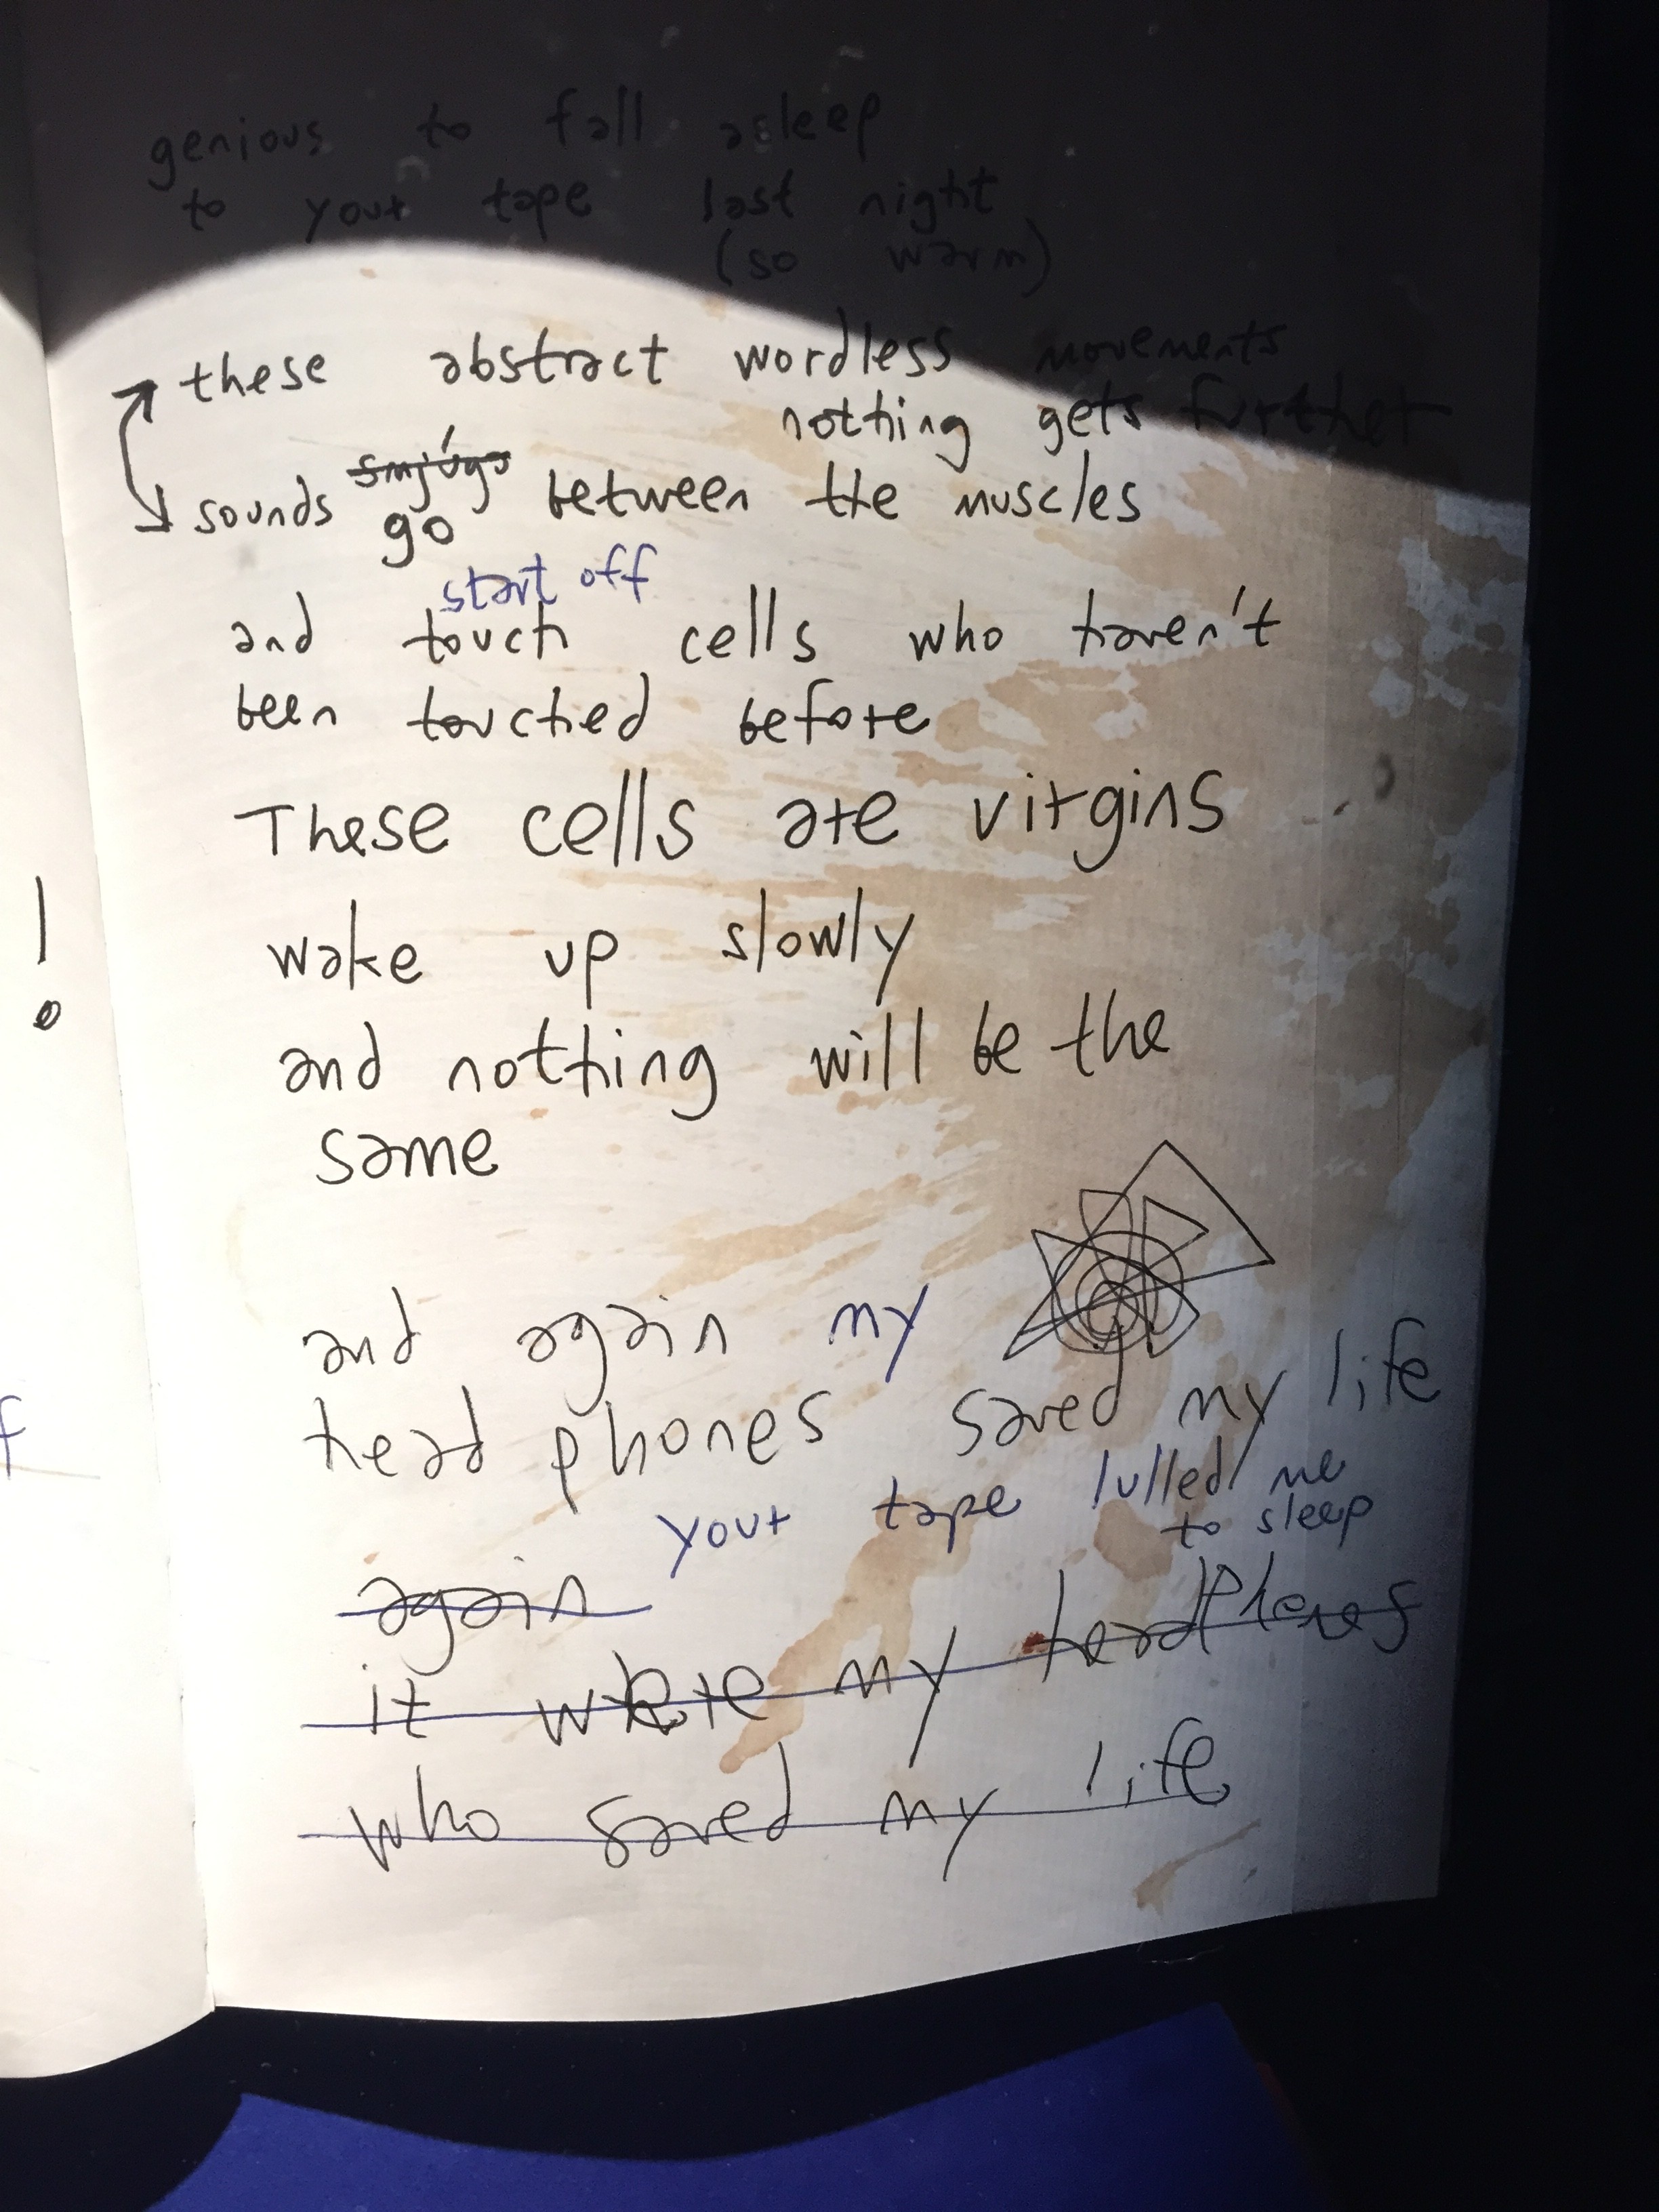 genious to fall asleep
to your tape last night
(so warm)
these abstract wordless movements
nothing gets further
sounds smjúga between the muscles
go
start off
and touch cells who haven't
been touched before
These cells are virgins
wake up slowly
and nothing will be the
same
and again my
head phones saved my life
your tape lulled me
to sleep
again
it where my headphones
who saved my life
!
f